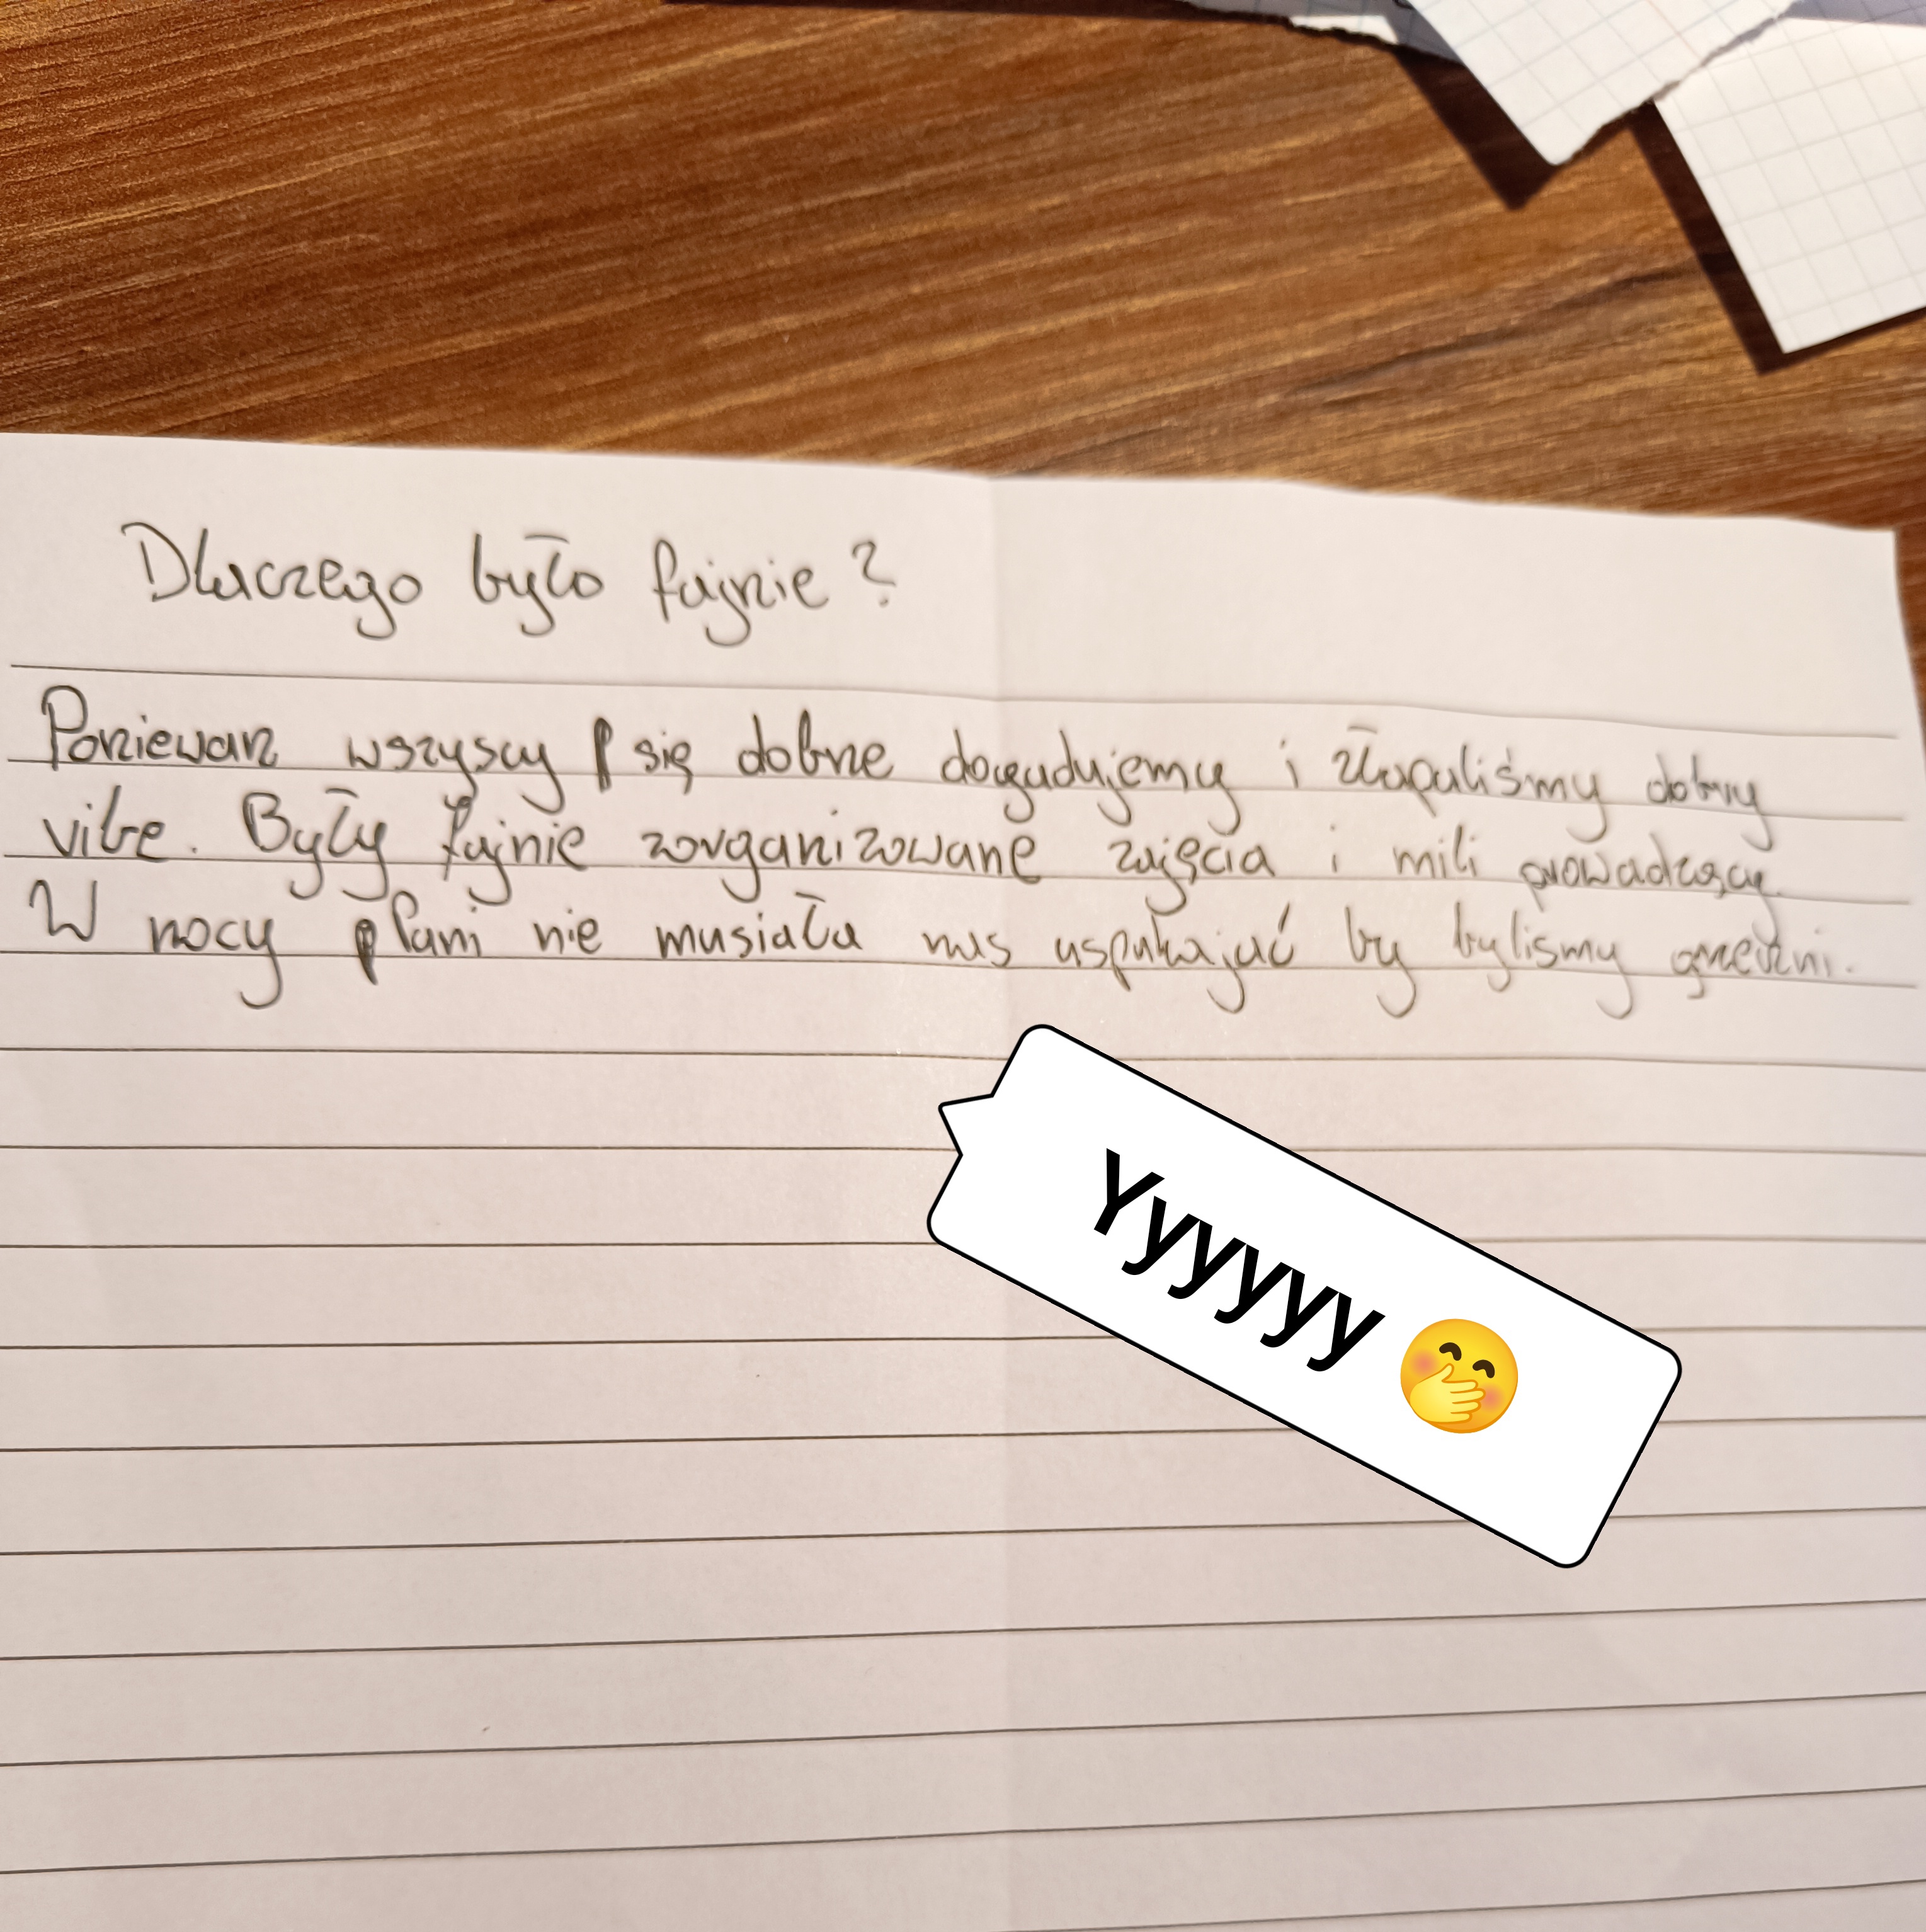 Dlaczego było fajnie?
Ponieważ wszyscy się dobrze dogadujemy i złapaliśmy dobry
vibe. Były fajnie zorganizowane zajęcia i mili prowadzący.
W nocy Pani nie musiała nas uspokajać by byliśmy grzeczni.
Yyyyyy 🤭